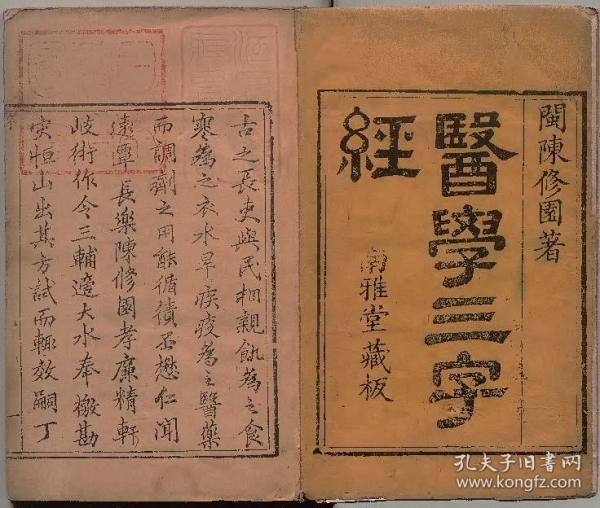 閩陳修園著
醫學三字
經
南雅堂藏板
古之長吏與民相親飢為之食
寒為之衣水旱疾疫為之醫藥
而調劑之用能循績丕懋仁聞
遠覃長樂陳修園孝廉精軒
岐術作令三輔適大水奉檄勘
災恒山出其方試而輒效嗣丁
孔夫子旧书网
www.kongfz.com